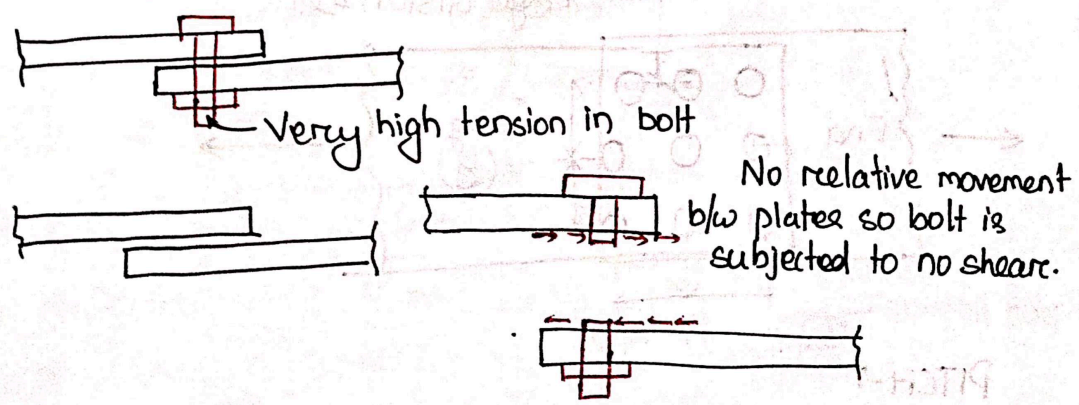 Very high tension in bolt
No reelative movement
b/w plates so bolt is
subjected to no sheare.